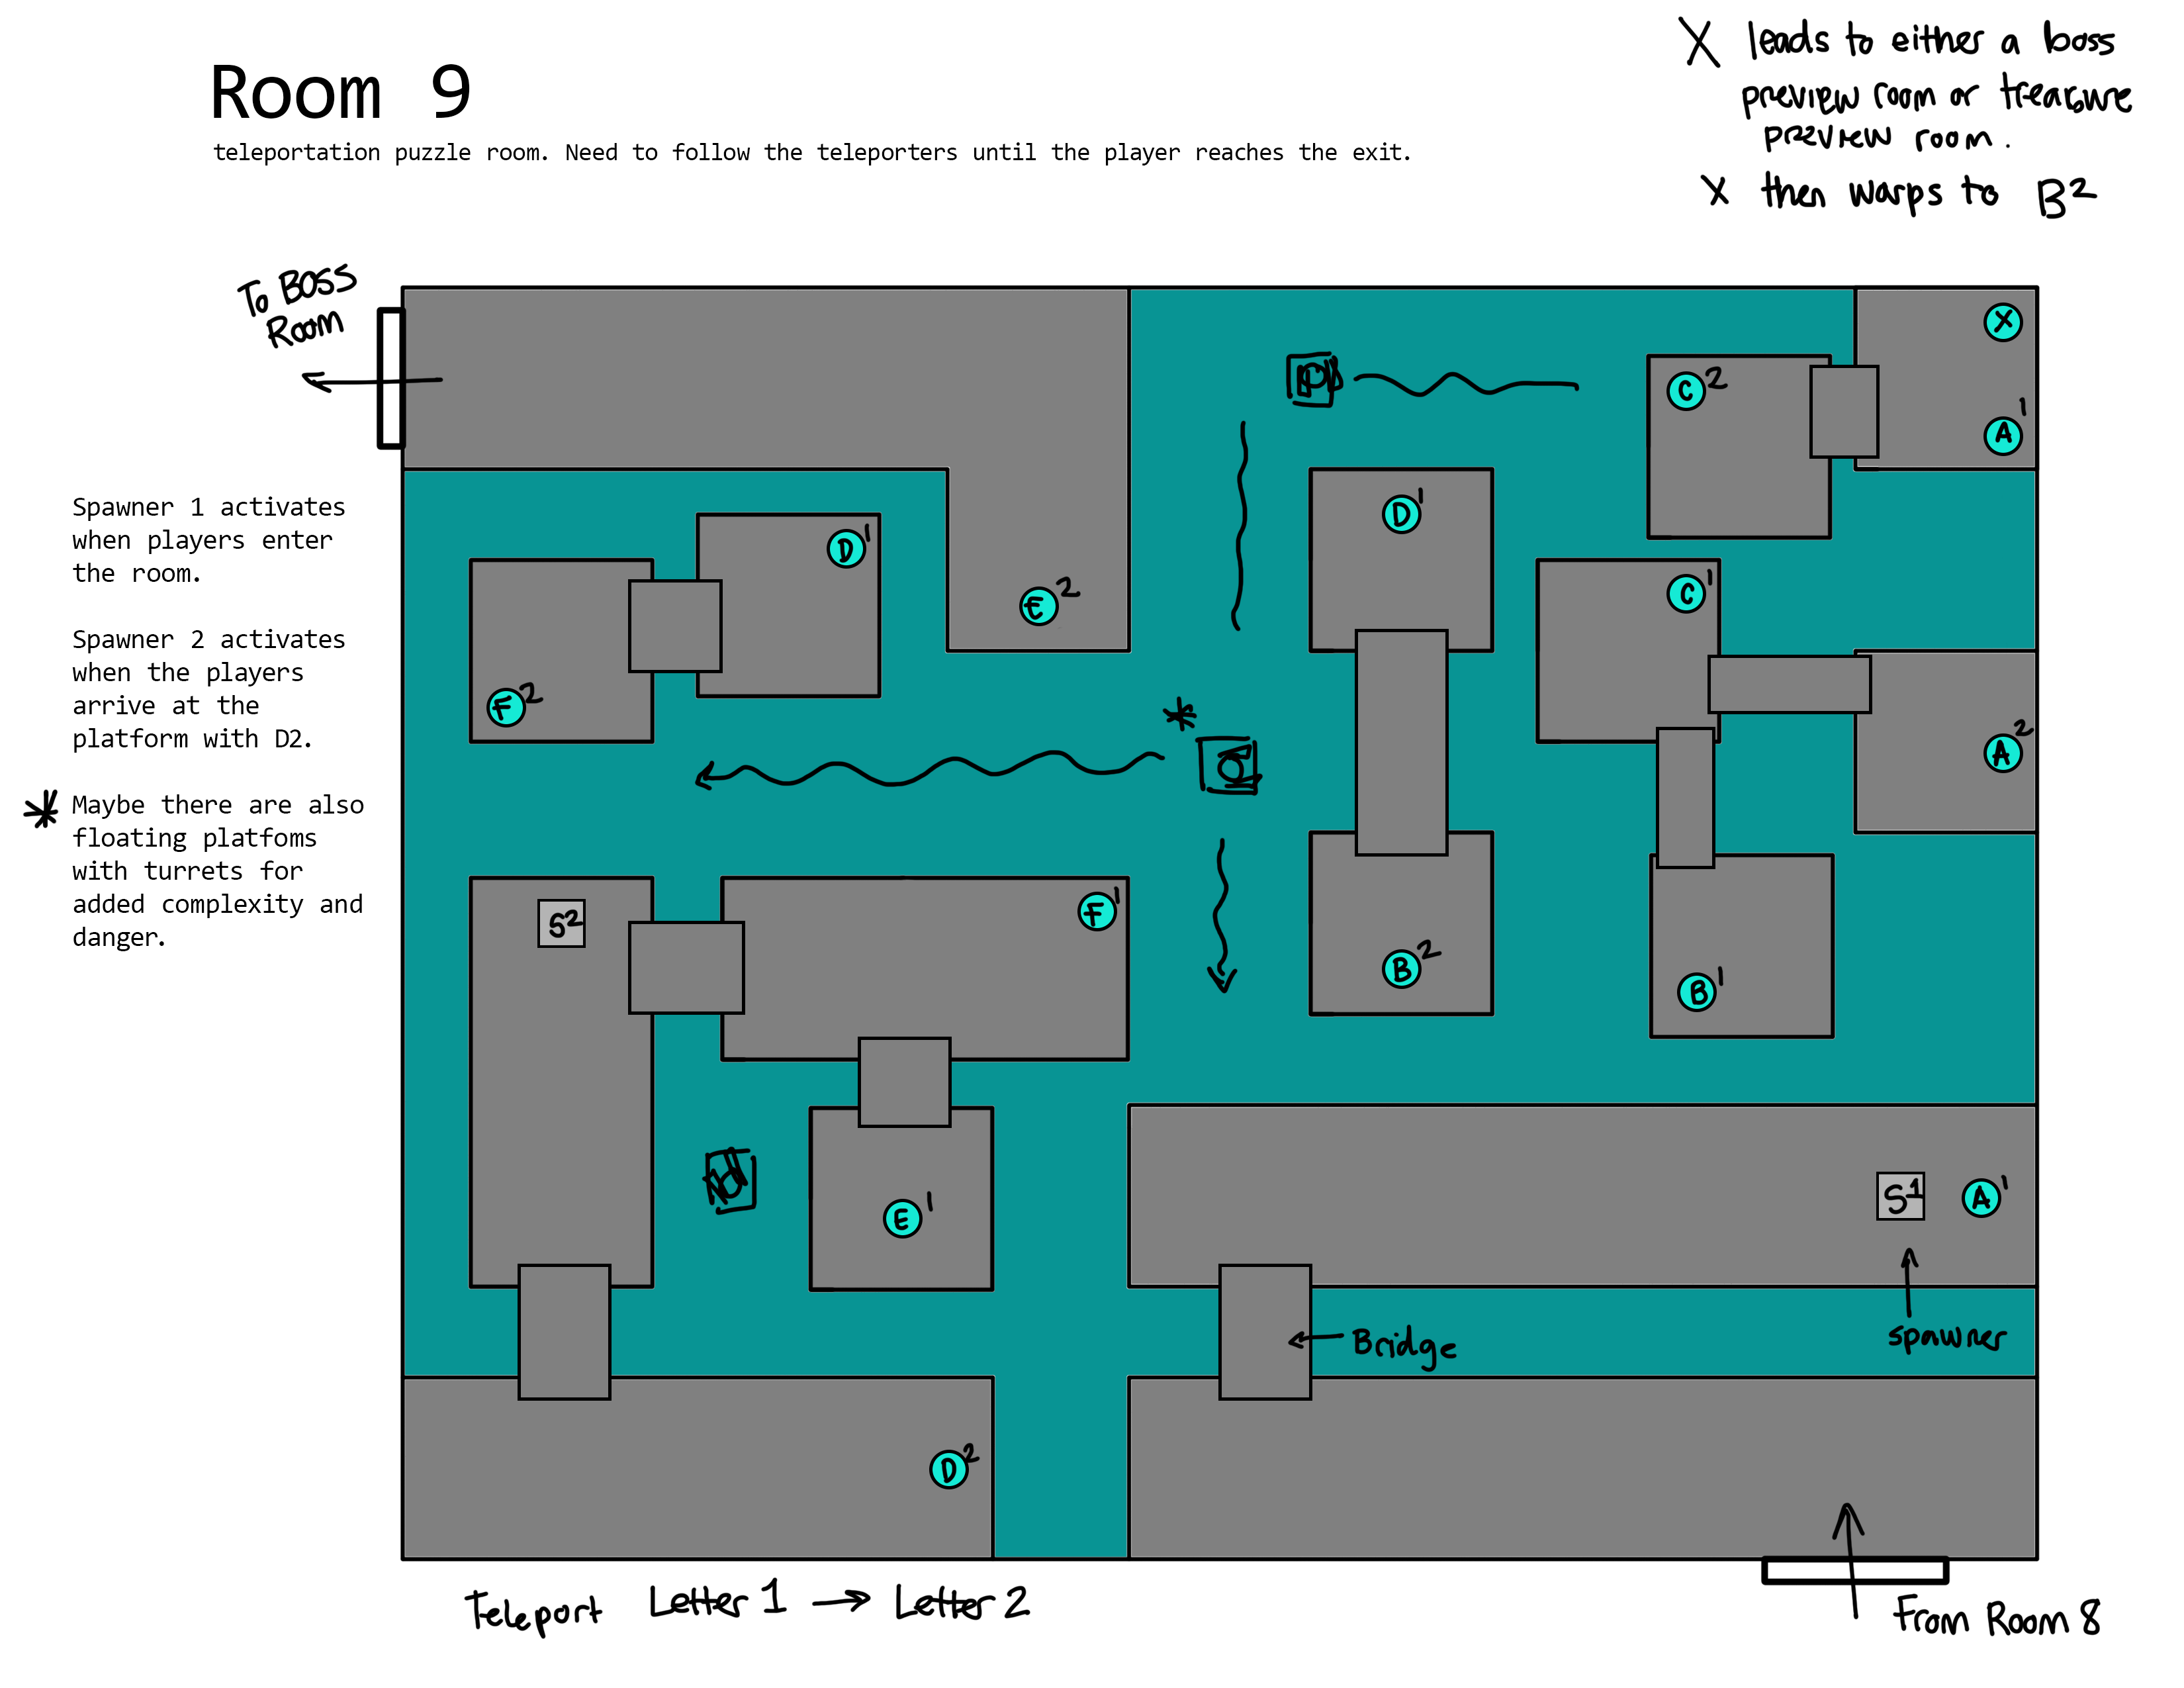 Room 9
teleportation puzzle room. Need to follow the teleporters until the player reaches the exit.
X leads to either a boss
preview room or treasure
preview room.
X then warps to B2
To Boss
Room
Spawner 1 activates
when players enter
the room.
Spawner 2 activates
when the players
arrive at the
platform with D2.
* Maybe there are also
floating platfoms
with turrets for
added complexity and
danger.
X
C2
A1
D1
C1
D1
E2
F2
*
A2
F1
S2
B2
B1
S1
A1
E1
spawner
Bridge
D2
Teleport Letter 1 → Letter 2
From Room 8